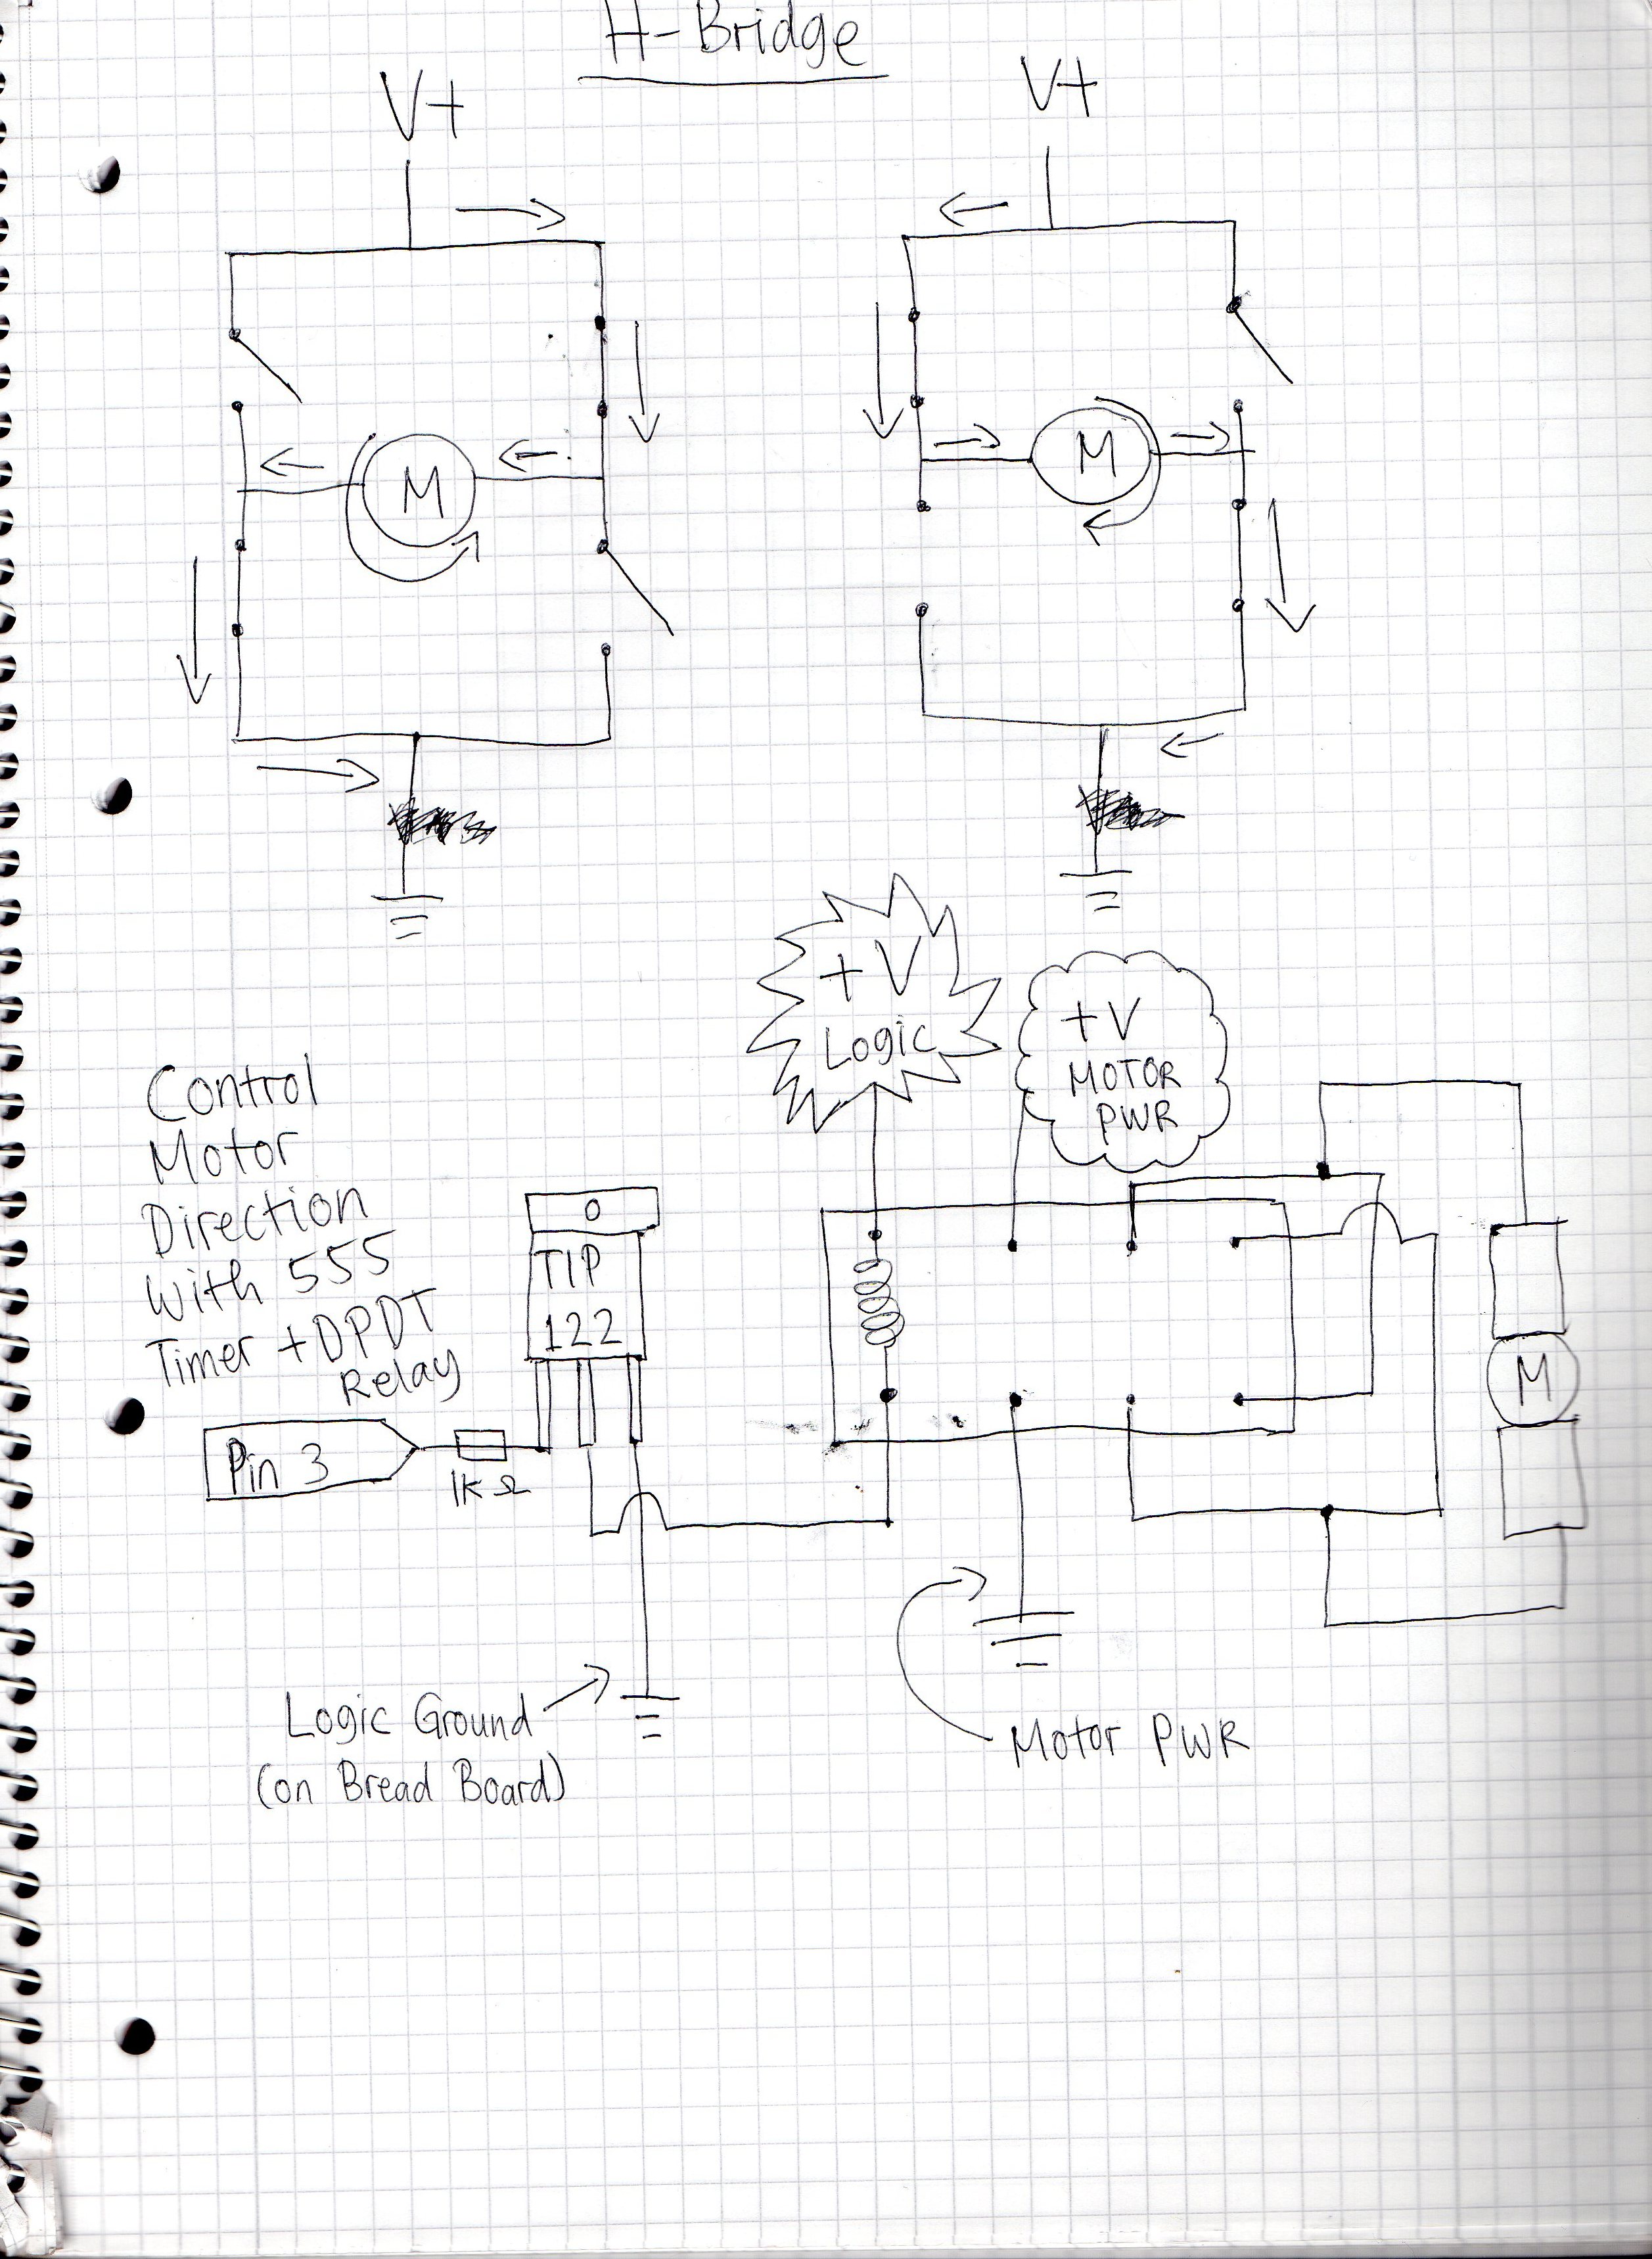 H-Bridge
V+
V+
M
M
+V
Logic
+V
MOTOR
PWR
Control
Motor
Direction
With 555
Timer + DPDT
Relay
TIP
122
M
Pin 3
1K Ω
Logic Ground
(on Bread Board)
Motor PWR